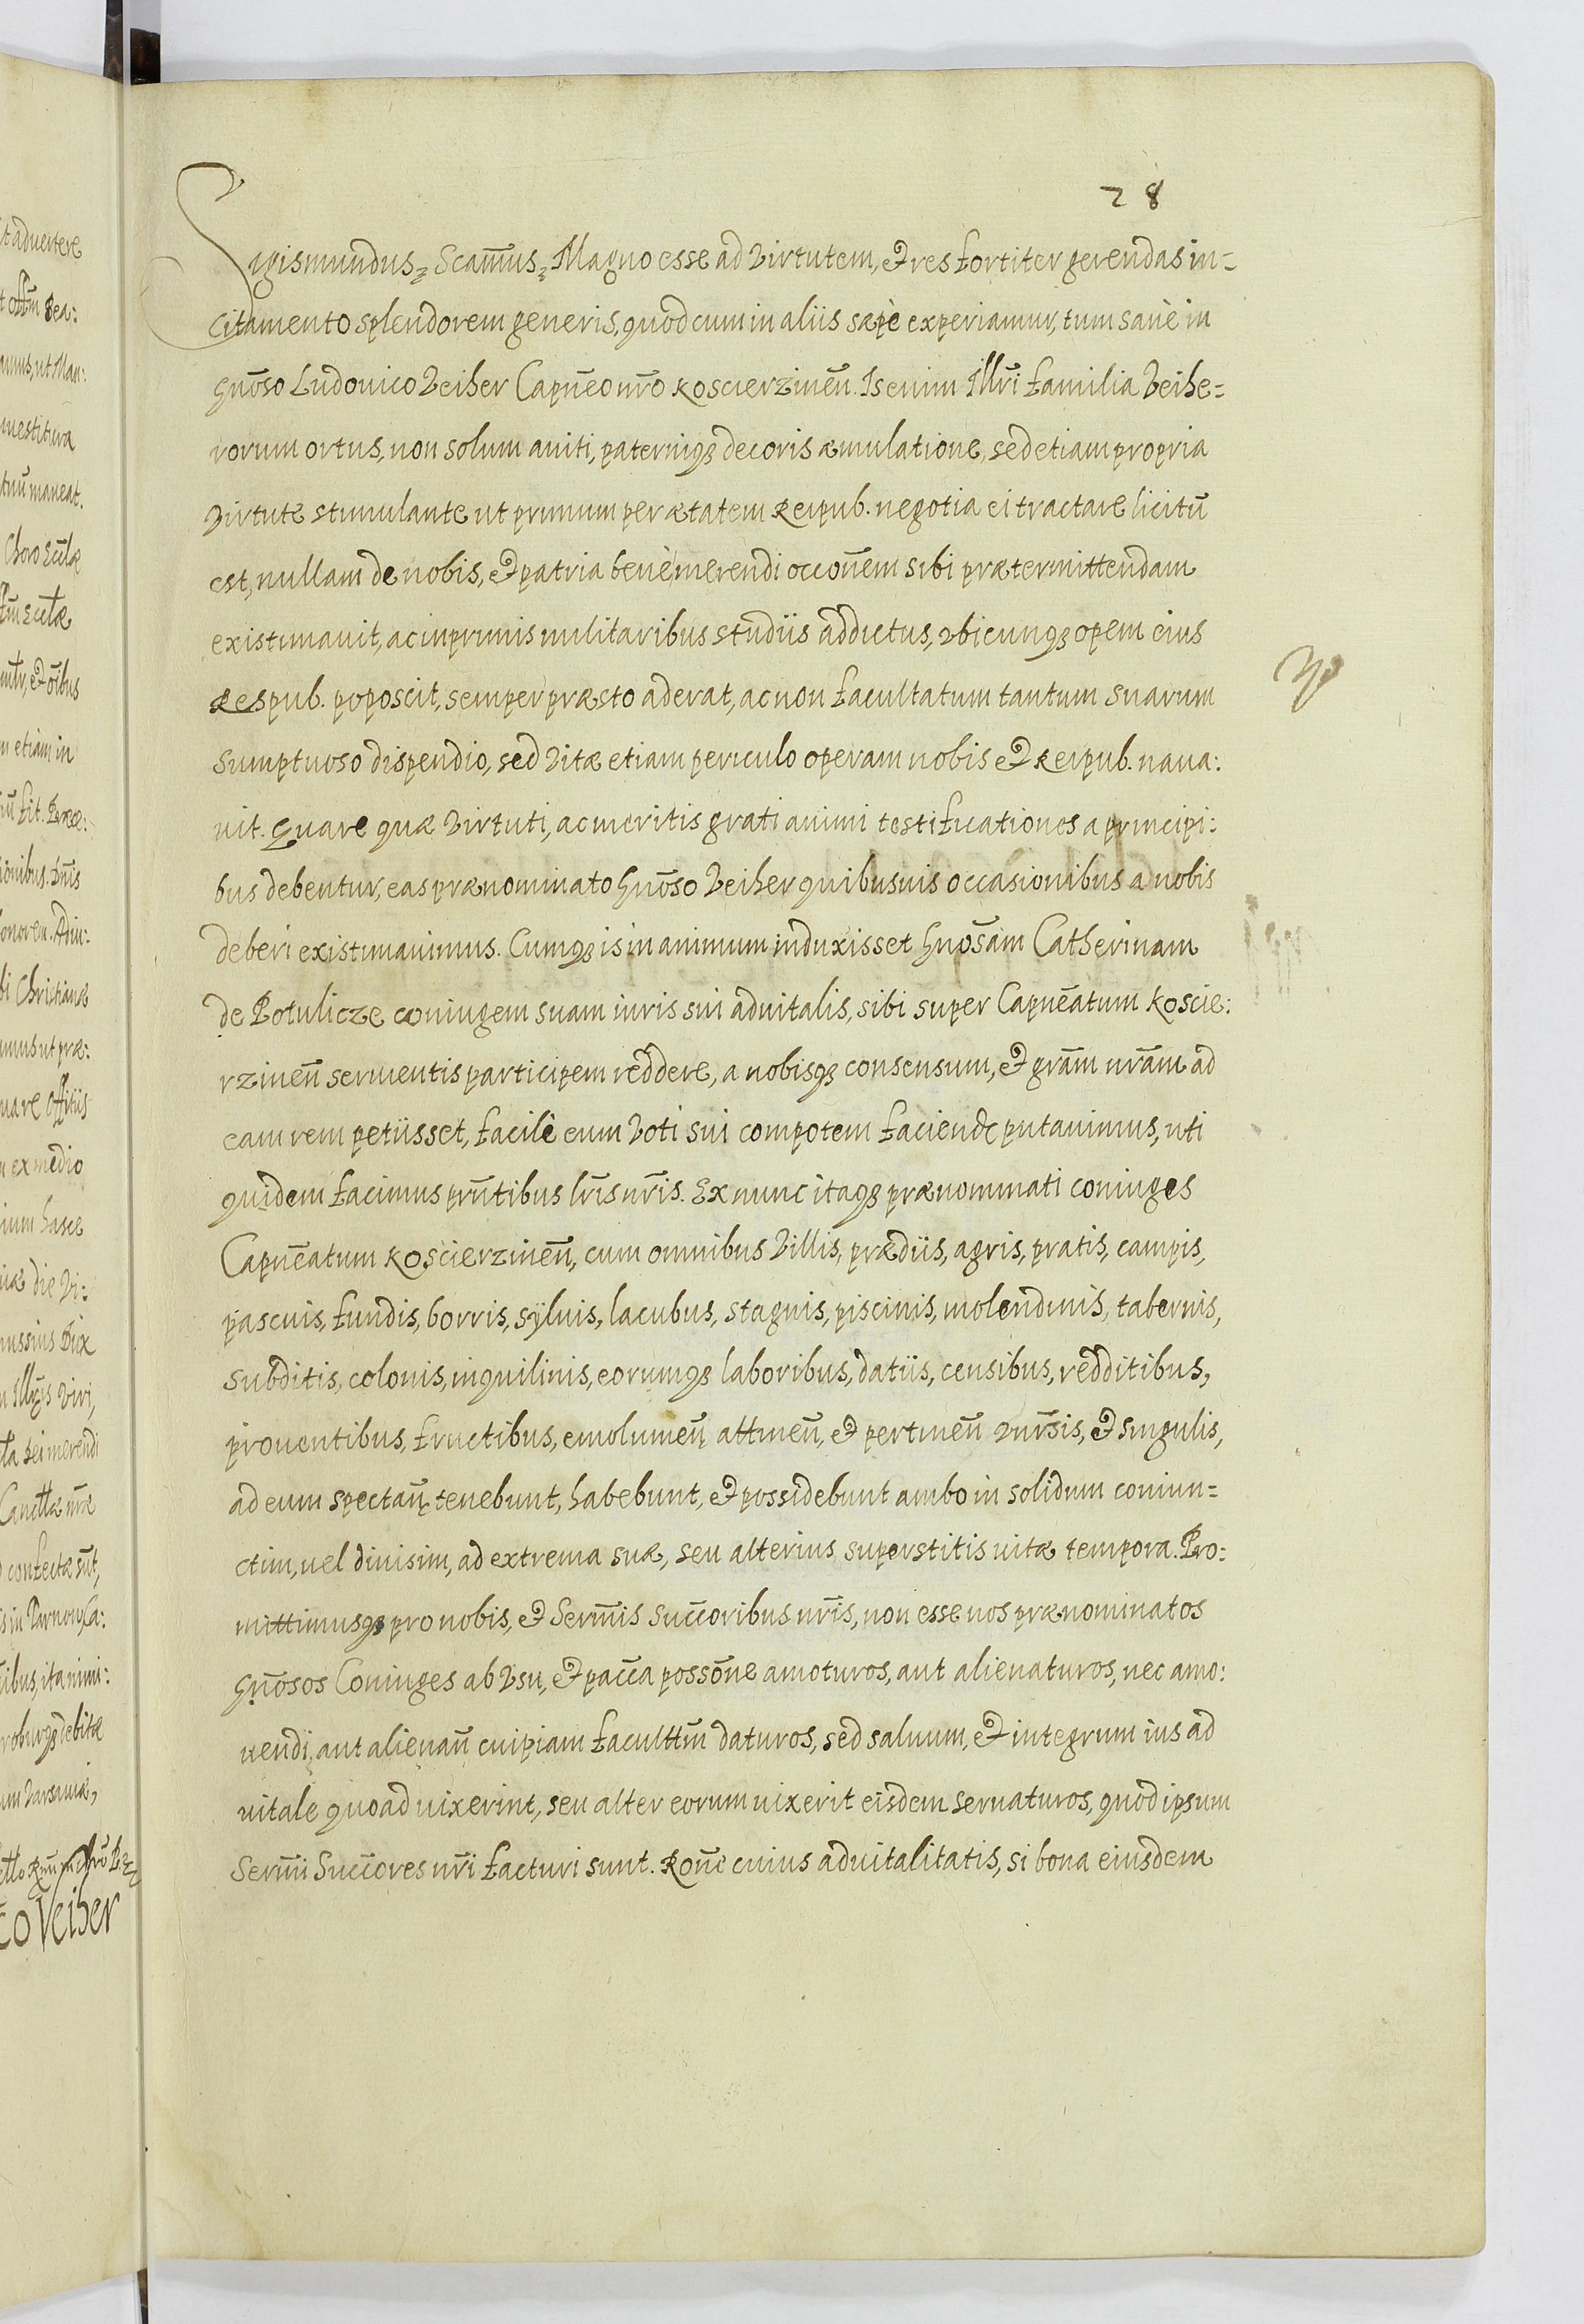 28
Sigismundus ꝫ Scam̄us ꝫ Magno esse ad Virtutem, et res fortiter gerendas in=
citamento splendorem generis, quod cum in aliis sæpè experiamur, tum sanè in
Gn̄oso Ludouico Veiher Capn̄eo nr̄o Koscierzinen̄. Is enim Illr̄i familia Veihe=
rorum ortus, non solum auiti, paterniqꝫ decoris æmulatione, sed etiam propria
Virtute stimulante ut primum per ætatem Reipub. negotia ei tractare licitū
est, nullam de nobis, et patria benè merendi occōnem sibi prætermittendam
existimauit, ac inprimis militaribus studiis addictus, ubicunqꝫ opem eius
Respub. poposcit, semper præsto aderat, ac non facultatum tantum suarum
sumptuoso dispendio, sed Vitæ etiam periculo operam nobis et Reipub. naua:
uit. Quare quæ Virtuti, ac meritis grati animi testificationes a principi:
bus debentur, eas prænominato Gn̄oso Veiher quibusuis occasionibus a nobis
deberi existimauimus. Cumqꝫ is in animum induxisset Gn̄osam Catherinam
de Potulicze coniugem suam iuris sui aduitalis, sibi super Capn̄eatum Koscie:
rzinen̄ seruientis participem reddere, a nobisqꝫ consensum, et gram̄ nram̄ ad
eam rem petiisset, facilè eum Voti sui compotem faciendū putauimus, uti
quidem facimus prn̄tibus lrīs nrīs. Ex nunc itaqꝫ prænominati coniuges
Capn̄eatum Koscierzinen̄, cum omnibus Villis, prædiis, agris, pratis, campis,
pascuis, fundis, borris, syluis, lacubus, stagnis, piscinis, molendinis, tabernis,
subditis, colonis, inquilinis, eorumqꝫ laboribus, datiis, censibus, redditibus,
prouentibus, fructibus, emolumen̄, attinen̄, et pertinen̄ Vnīrsis, et singulis,
ad eum spectan̄, tenebunt, habebunt, et possidebunt ambo in solidum coniun=
ctim, uel diuisim, ad extrema suæ, seu alterius superstitis uitæ tempora. Pro:
mittimusqꝫ pro nobis, et Serm̄is Succ̄oribus nrīs, non esse nos prænominatos
Gn̄osos Coniuges ab Vsu, et pacc̄a possōne amoturos, aut alienaturos, nec amo:
uendi, aut alienan̄ cuipiam facultt̄m daturos, sed saluum, et integrum ius ad
uitale quoad uixerint, seu alter eorum uixerit eisdem seruaturos, quod ipsum
Serm̄i Succ̄ores nrī facturi sunt. Rōne cuius aduitalitatis, si bona eiusdem